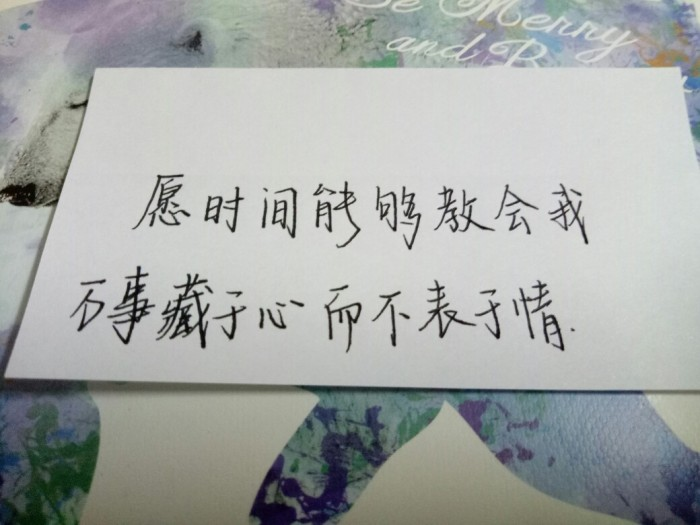 Be Merry
and
愿时间能够教会我
万事藏于心而不表于情.